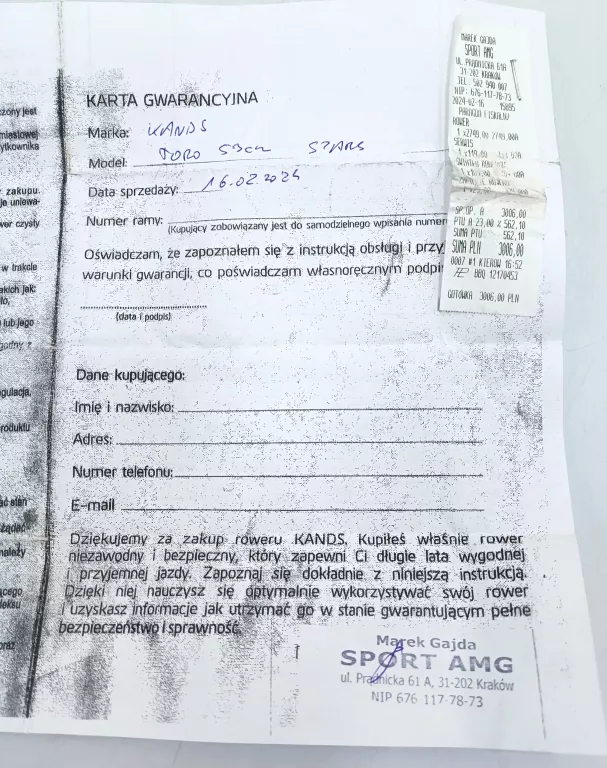 zony jest
miastowej
ytkownika
zakupu.
je uniewa-
wer czysty
w trakcie
akich jak:
lub jego
godny z
gulacja,
roduktu
ać stan
żądać
należy
ącego
deksu
oraz
KARTA GWARANCYJNA
Marka: KANDS
Model: TORO
Data sprzedaży: 16.02.2024
Numer ramy:
(Kupujący zobowiązany jest do samodzielnego wpisania numer
Oświadczam, że zapoznałem się z instrukcją obsługi i przy
warunki gwarancji, co poświadczam własnoręcznym podpi
(data i podpis)
Dane kupującego:
Imię i nazwisko:
Adres:
Numer telefonu:
E-mail
Dziękujemy za zakup roweru KANDS. Kupiłeś właśnie rower
niezawodny i bezpieczny, który zapewni Ci długie lata wygodnej
i przyjemnej jazdy. Zapoznaj się dokładnie z niniejszą instrukcją.
Dzięki niej nauczysz się optymalnie wykorzystywać swój rower
i uzyskasz informacje jak utrzymać go w stanie gwarantującym pełne
bezpieczeństwo i sprawność.
Marek Gajda
SPORT AMG
ul. Prądnicka 61 A, 31-202 Kraków
NIP 676 117-78-73
MAREK GAJDA
SPORT AMG
UL. PRĄDNICKA 61A
31-202 KRAKÓW
TEL. 502 940 007
NIP: 676-117-78-73
2024-02-16 15895
PARAGON FISKALNY
ROWER
1 x2749,00 2749,00A
SERWIS
SP.OP. A 3006,00
PTU A 23,00 % 562,10
SUMA PTU 562,10
SUMA PLN 3006,00
0007 #1 KIEROW 16:52
BBQ 12170453
GOTÓWKA 3006,00 PLN